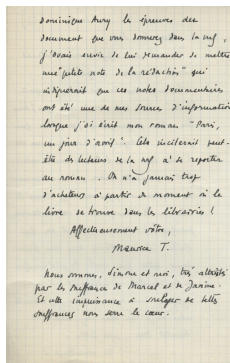 Dominique Aury les épreuves des
document que vous donnerez dans la nrf,
j'avais envie de lui demander de mettre
une "petite note de la rédaction" qui
indiquerait que ces notes documentaires
ont été une de mes sources d'information
lorsque j'ai écrit mon roman "Paris,
un jour d'avril". Cela inciterait peut-
être des lecteurs de la nrf à se reporter
au roman. On n'a jamais trop
d'acheteurs à partir du moment où le
livre se trouve dans les librairies !
Affectueusement vôtre,
Maurice T.
Nous sommes, Simone et moi, très attristés
par les souffrances de Marcel et de Janine.
Et cette impuissance à soulager de telles
souffrances nous serre le cœur.